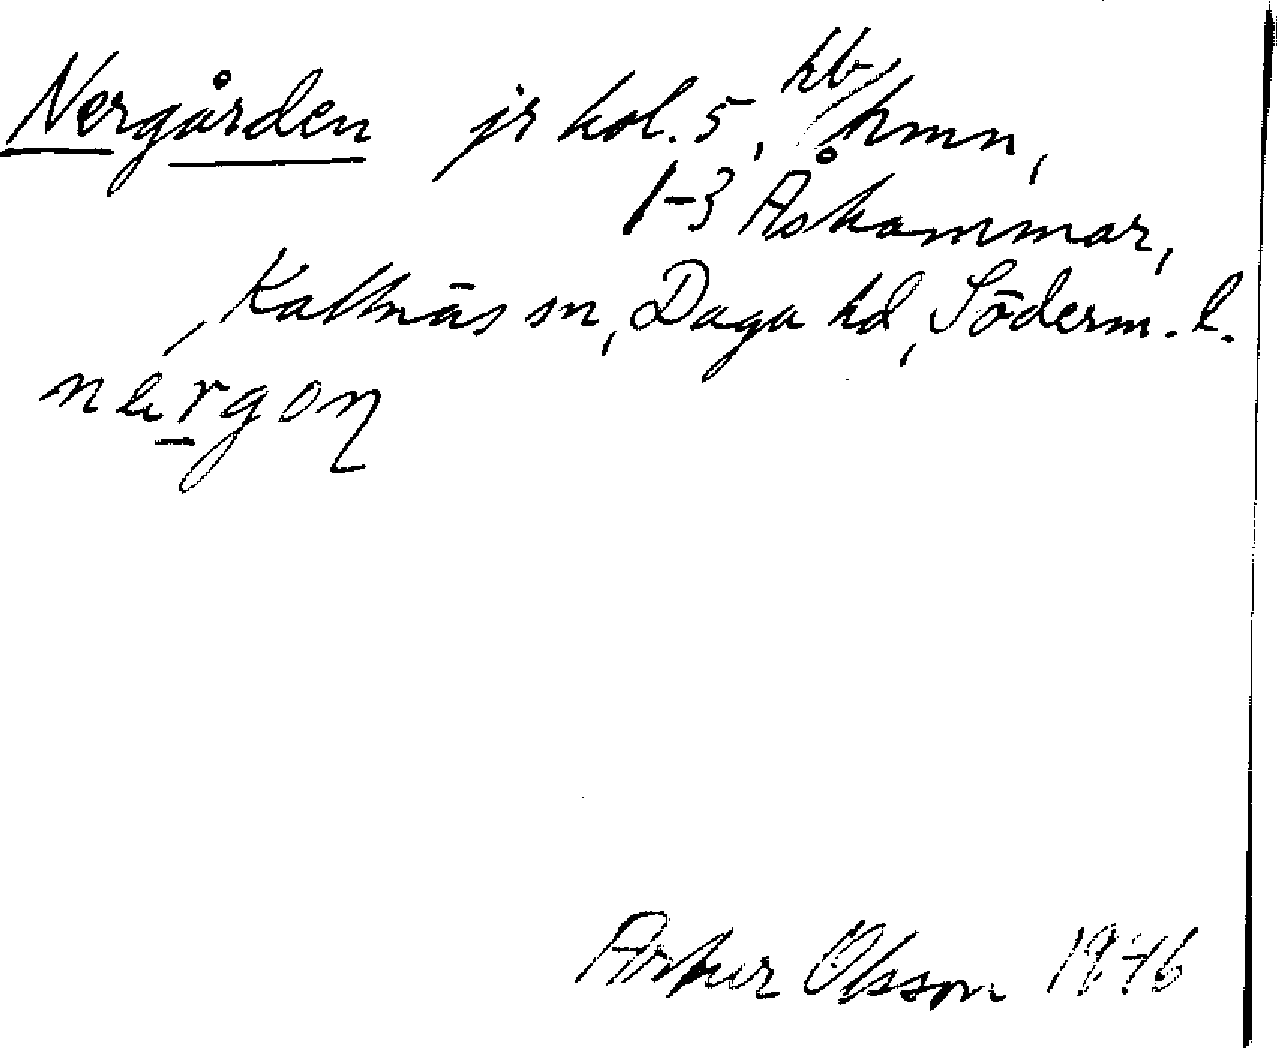 Nergården jr kol. 5, hb/hmn,
1-3 Åskammar,
Kattnäs sn, Daga hd, Söderm. l.
Arthur Olsson 1946